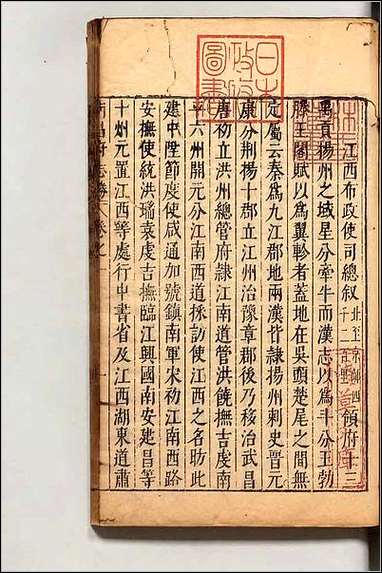 日本政府圖書
江西布政使司總叙 北至京師四千二百里 領府十三
禹貢揚州之域星分牽牛而漢志以爲斗分王勃
滕王閣賦以爲翼軫者蓋地在吳頭楚尾之間無
定屬云秦爲九江郡地兩漢皆隷揚州刺史晋元
康分荆揚十郡立江州治豫章郡後乃移治武昌
唐初立洪州總管府隷江南道管洪饒撫吉虔南
平六州開元分江南西道採訪使江西之名助此
建中陞節度使咸通加號鎮南軍宋初江南西路
安撫使統洪瑞袁虔吉撫臨江興國南安建昌等
十州元置江西等處行中書省及江西湖東道肅
南昌府志勝 卷之一